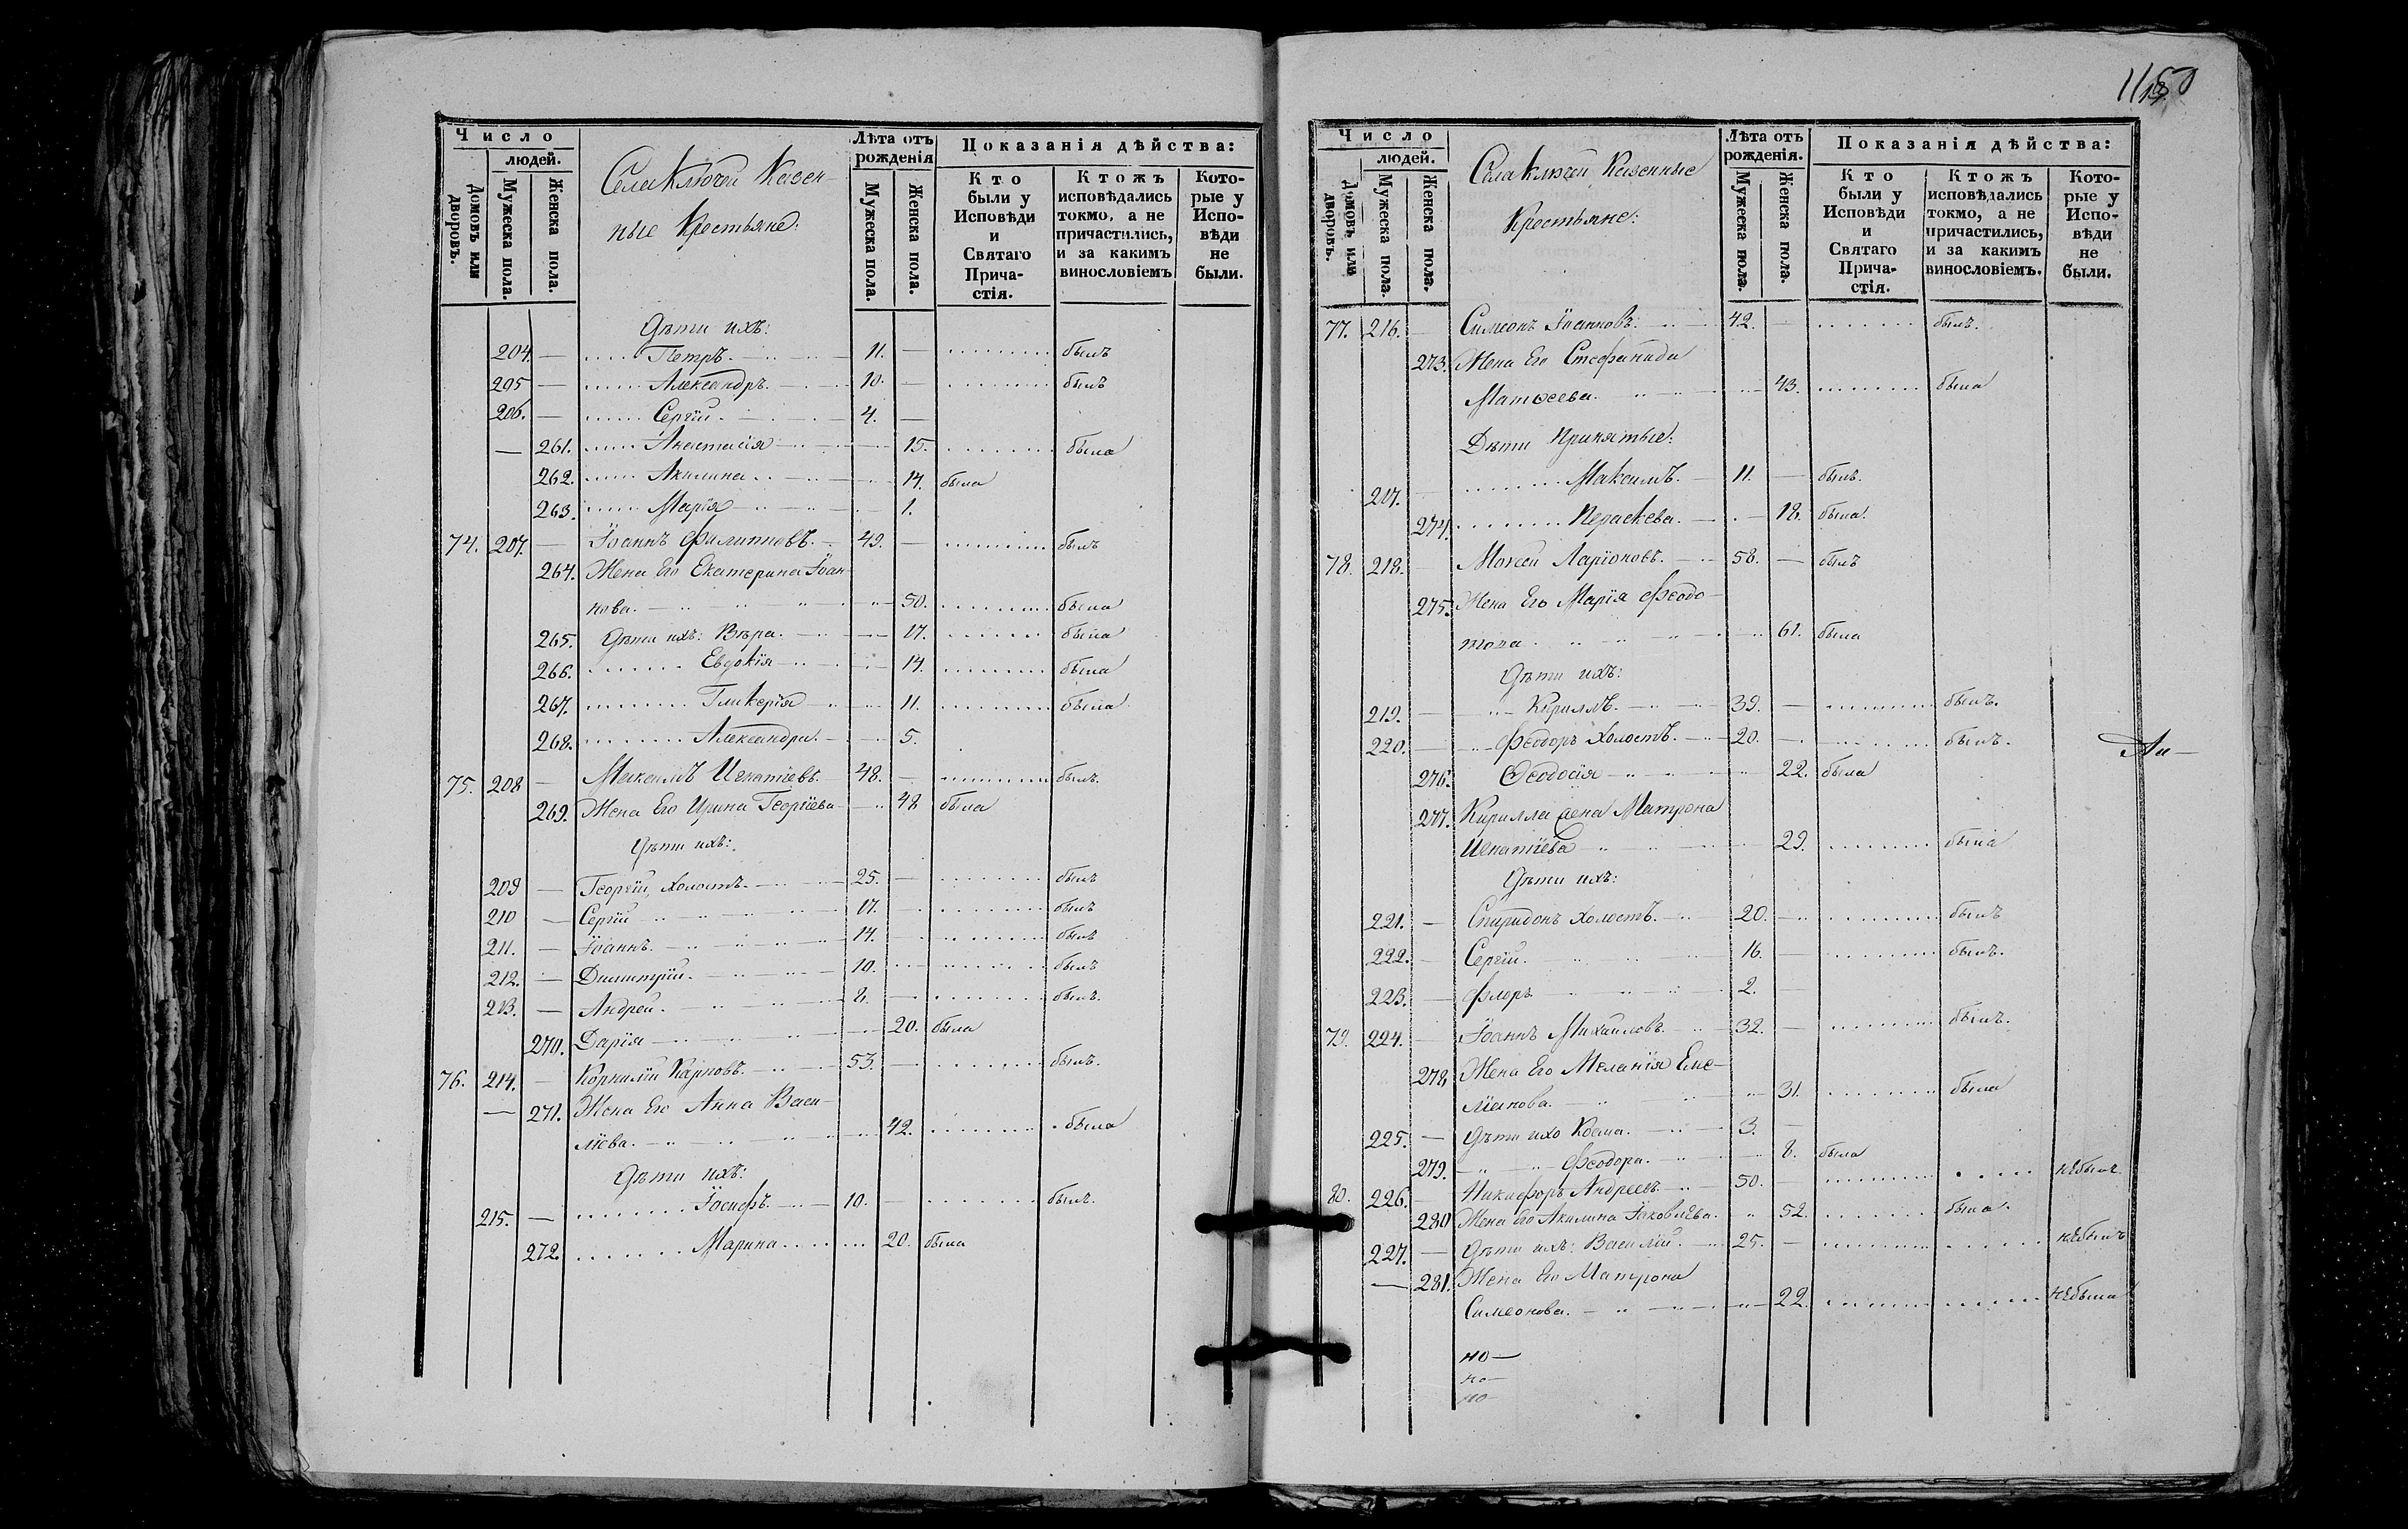 Число
людей.
Домовъ или дворовъ.
Мужеска пола.
Женска пола.
Села Ключей Казен-
ные Крестьяне:
Лѣта отъ рожденія
Мужеска пола.
Женска пола.
Показанія дѣйства:
Кто были у Исповѣди и Святаго Прича-стія.
Ктожъ исповѣдались токмо, а не причастились, и за какимъ винословіемъ
Кото-рые у Испо-вѣди не были.
Дѣти ихъ:
204. — Петръ. 11. — былъ
205 — Александръ. 10. — былъ
206. — Сергій 4. —
— 261. Анастасія 15. была
262. Акилина 14. была
263. Марія 1.
74. 207. — Іоаннъ Филипповъ. 49. — былъ
264. Жена Его Екатерина Іоан-
нова. 50. была
265. Дѣти ихъ: Вѣра. 17. была
266. Евдокія 14. была
267. Гликерія 11. была
268. Александра. 5.
75. 208 — Максимъ Игнатіевъ. 48. — былъ.
269. Жена Его Ирина Георгіева 48 была
Дѣти ихъ:
209 — Георгій, холостъ. 25. — былъ
210 — Сергій 17. — былъ
211. — Іоаннъ. 14. — былъ
212. — Димитрій. 10. — былъ
213. — Андрей. 8. — былъ.
270. Дарія 20. была
76. 214. — Корнилій Карповъ. 53. — былъ.
— 271. Жена Его Анна Васи-
ліева. 42. была
Дѣти ихъ:
215. — Іосифъ. 10. — былъ.
272. Марина 20. была
1150
Число
людей.
Домовъ или дворовъ.
Мужеска пола.
Женска пола.
Села Ключей Казенные
Крестьяне:
Лѣта отъ рожденія.
Мужеска пола.
Женска пола.
Показанія дѣйства:
Кто были у Исповѣди и Святаго Прича-стія.
Ктожъ исповѣдались токмо, а не причастились, и за какимъ винословіемъ.
Кото-рые у Испо-вѣди не были.
77. 216. — Симеонъ Іоанновъ. 42. — былъ.
273. Жена Его Стефанида
Матѳеева. 43. была
Дѣти Принятые:
217. — Максимъ. 11. — былъ.
274. Параскева. 18. была.
78. 218. — Мокей Ларіоновъ. 58. — былъ
275. Жена Его Марія Федо-
това 61. была
Дѣти ихъ:
219. — Кириллъ. 39. — былъ.
220. — Феодоръ холостъ. 20. — былъ.
276. Ѳеодосія 22. была
277. Кирилла жена Матрона
Игнатіева 29. была
Дѣти ихъ:
221. — Спиридонъ холостъ. 20. — былъ
222. — Сергій. 16. — былъ.
223. — Флоръ 2. —
79. 224. — Іоаннъ Михайловъ. 32. — былъ.
278. Жена Его Меланія Еме-
ліанова. 31. была
225. — Дѣти ихъ Косма. 3. —
279. Феодора. 8. была
80. 226. — Никифоръ Андреевъ. 50. — небылъ
280 Жена Его Акилина Іаковлева. 52. была.
227. — Дѣти ихъ: Василій. 25. — небылъ
— 281. Жена Его Матрона
Симеонова. 22. небыла
но—
но—
но—